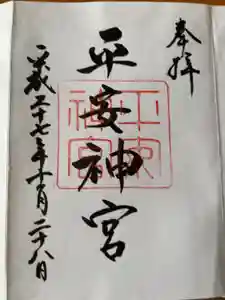 奉拝
平安神宮
平安神宮
平成二十七年十一月二十八日